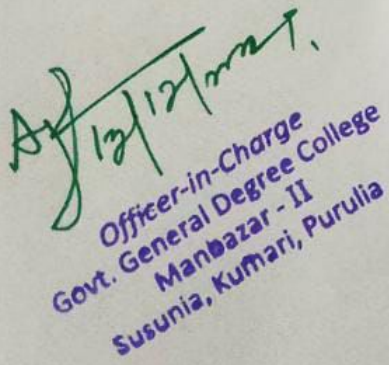 Officer-in-Charge
Govt. General Degree College
Manbazar - II
Susunia, Kumari, Purulia